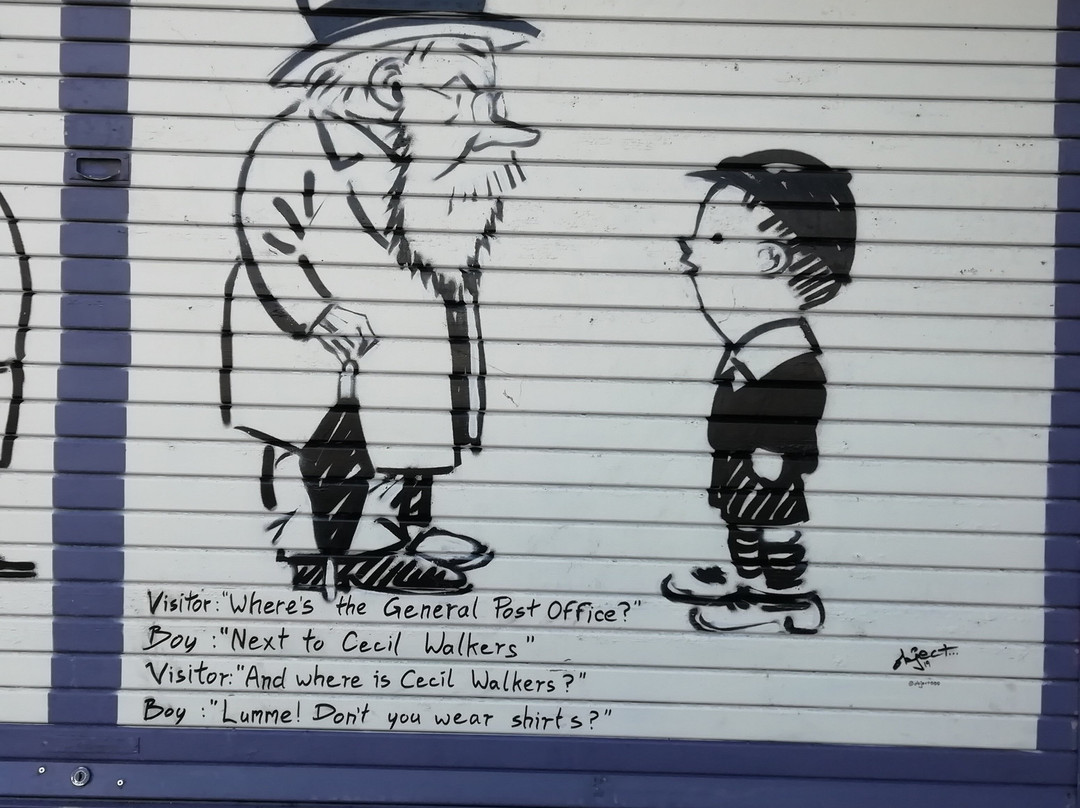 Visitor:"Where's the General Post Office?"
Boy :"Next to Cecil Walkers"
Visitor:"And where is Cecil Walkers?"
Boy :"Lumme! Don't you wear shirts?"
object...
19